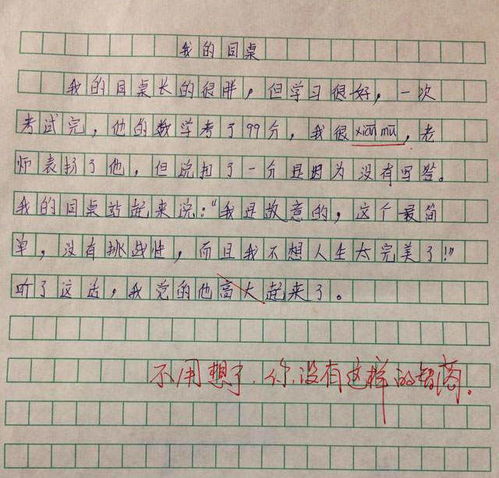 我的同桌
我的同桌长的很胖，但学习很好，一次
考试完，他的数学考了99分，我很xian mu，老
师表扬了他，但说扣了一分是因为没有写答。
我的同桌站起来说："我是故意的，这个最简
单，没有挑战性，而且我不想人生太完美了!"
听了这话，我觉的他高大起来了。
不用想了，你没有这样的智商。